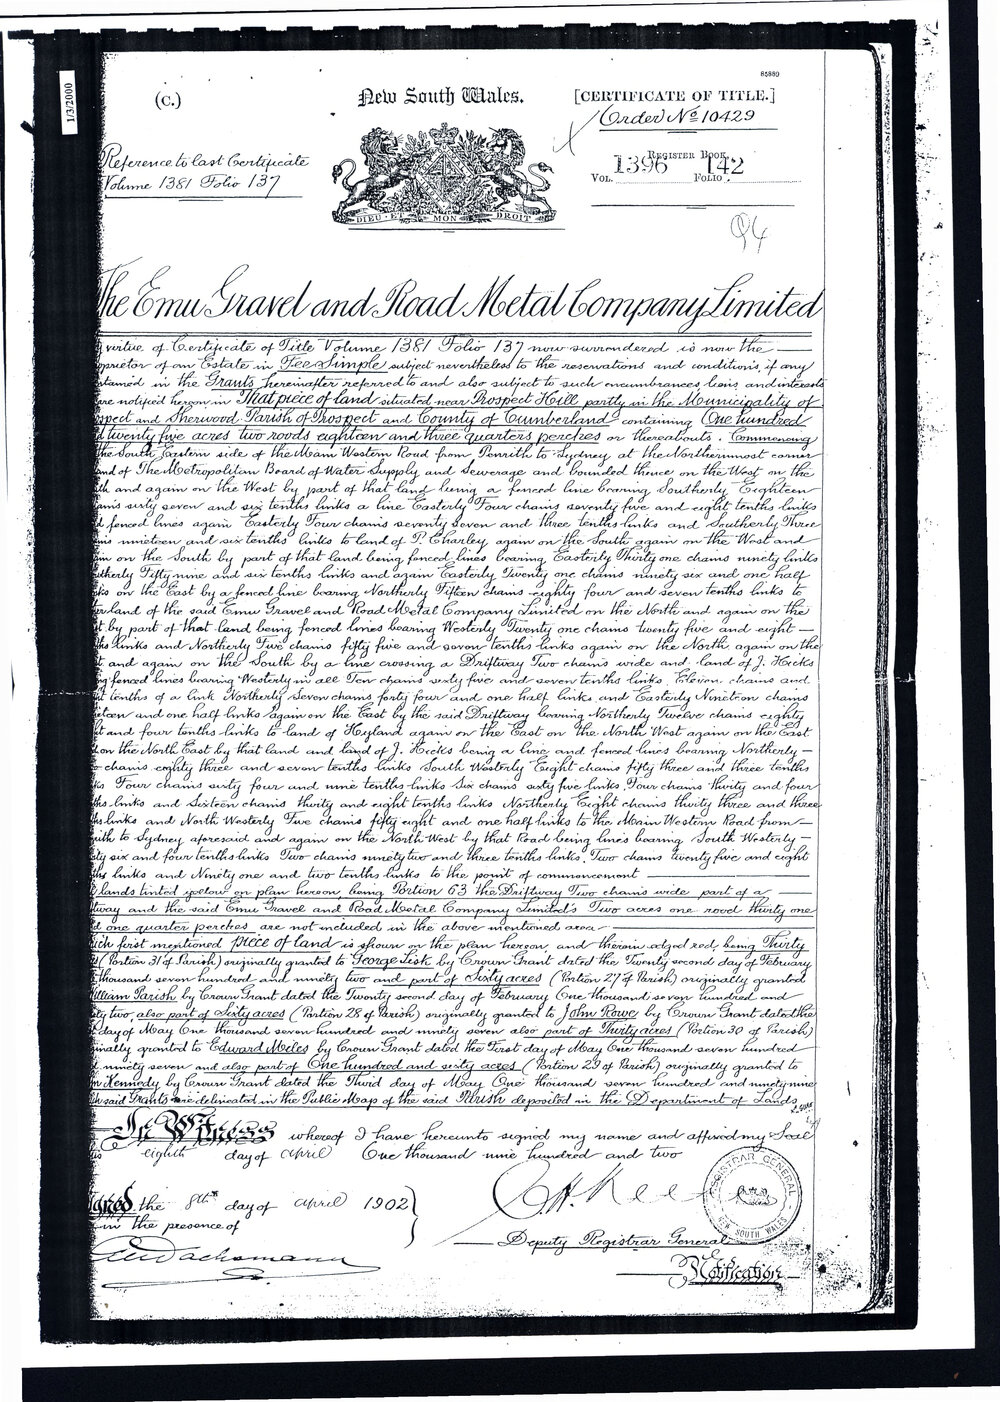 85889
1/3/2000
(C.)
New South Wales.
[CERTIFICATE OF TITLE.]
Order No 10429
Reference to last Certificate
Volume 1381 Folio 137
REGISTER BOOK
VOL. 1396 FOLIO 142
DIEU ET MON DROIT
94
The Emu Gravel and Road Metal Company Limited
virtue of Certificate of Title Volume 1381 Folio 137 now surrendered is now the
oprietor of an Estate in Fee Simple subject nevertheless to the reservations and conditions, if any
ntained in the Grants hereinafter referred to and also subject to such encumbrances, liens, and interests
are notified hereon in That piece of land situated near Prospect Hill partly in the Municipality of
ospect and Sherwood Parish of Prospect and County of Cumberland containing One hundred
d twenty five acres two roods eighteen and three quarters perches or thereabouts. Commencing
the South Eastern side of the Main Western Road from Penrith to Sydney at the Northernmost corner
and of The Metropolitan Board of Water Supply and Sewerage and bounded thence on the West on the
th and again on the West by part of that land being a fenced line bearing Southerly Eighteen
ains sixty seven and six tenths links a line Easterly Four chains seventy five and eight tenths links
d fenced lines again Easterly Four chains seventy seven and three tenths links and Southerly Three
ins nineteen and six tenths links to land of P. Charley again on the South again on the West and
in on the South by part of that land being fenced lines bearing Easterly Thirty one chains ninety links
utherly Fifty nine and six tenths links and again Easterly Twenty one chains ninety six and one half
ks on the East by a fenced line bearing Northerly Fifteen chains eighty four and seven tenths links to
er land of the said Emu Gravel and Road Metal Company Limited on the North and again on the
t by part of that land being fenced lines bearing Westerly Twenty one chains twenty five and eight
ths links and Northerly Five chains fifty five and seven tenths links again on the North again on the
t and again on the South by a line crossing a Driftway Two chains wide and land of J. Hicks
ng fenced lines bearing Westerly in all Ten chains sixty five and seven tenths links. Eleven chains and
t tenths of a link Northerly Seven chains forty four and one half links and Easterly Nineteen chains
ieteen and one half links again on the East by the said Driftway bearing Northerly Twelve chains eighty
ht and four tenths links to land of Hyland again on the East on the North West again on the East
d on the North East by that land and land of J. Hicks being a line and fenced lines bearing Northerly
chains eighty three and seven tenths links South Westerly Eight chains fifty three and three tenths
ks Four chains sixty four and nine tenths links Six chains sixty five links. Four chains thirty and four
ths links and Sixteen chains thirty and eight tenths links Northerly Eight chains thirty three and three
ths links and North Westerly Five chains fifty eight and one half links to the Main Western Road from
ith to Sydney aforesaid and again on the North West by that Road being lines bearing South Westerly
ty six and four tenths links Two chains ninety two and three tenths links. Two chains twenty five and eight
ths links and Ninety one and two tenths links to the point of commencement
lands tinted yellow on plan hereon, being Portion 63 the Driftway Two chains wide part of a
tway and the said Emu Gravel and Road Metal Company Limited's Two acres one rood thirty one
d one quarter perches are not included in the above mentioned area
ich first mentioned piece of land is shown on the plan hereon and therein edged red, being Thirty
(Portion 31 of Parish) originally granted to George Lisk by Crown Grant dated the Twenty second day of February
thousand seven hundred and ninety two and part of Sixty acres (Portion 27 of Parish) originally granted
illiam Parish by Crown Grant dated the Twenty second day of February One thousand seven hundred and
ty two, also part of Sixty acres (Portion 28 of Parish) originally granted to John Rowe by Crown Grant dated the
day of May One thousand seven hundred and ninety seven also part of Thirty acres (Portion 30 of Parish)
inally granted to Edward Meles by Crown Grant dated the First day of May One thousand seven hundred
d ninety seven and also part of One hundred and sixty acres (Portion 29 of Parish) originally granted to
n Kennedy by Crown Grant dated the Third day of May One thousand seven hundred and ninety nine
ch said Grants are delineated in the Public Map of the said Parish deposited in the Department of Lands
In Witness whereof I have hereunto signed my name and affixed my Seal
is eighth day of April One thousand nine hundred and two
Signed the 8th day of April 1902
in the presence of
Deputy Registrar General
REGISTRAR GENERAL
NEW SOUTH WALES
Notification